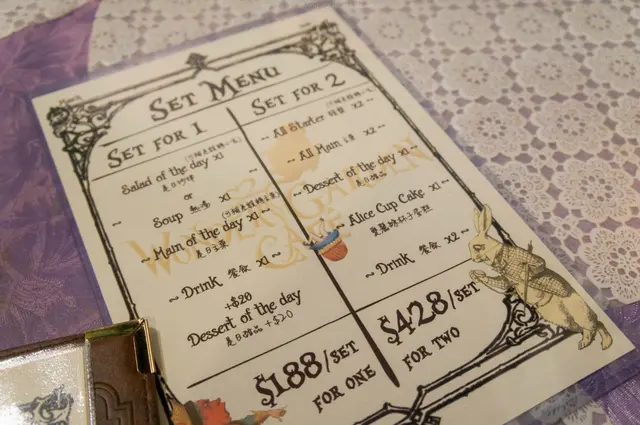 SET MENU
SET FOR 1
Salad of the day x1
是日沙律
or
~ Soup 熱湯 x1 ~
~ Main of the day x1 ~
是日主菜
~ Drink 餐飲 x1 ~
+$20
Dessert of the day
是日甜品 +$20
$188/SET
FOR ONE
SET FOR 2
~ All Starter 頭盤 x2 ~
~ All Main 主菜 x2 ~
~ Dessert of the day x1 ~
是日甜品
~ Alice Cup Cake x1 ~
愛麗絲杯子蛋糕
~ Drink 餐飲 x2 ~
$428/SET
FOR TWO
WONDER GARDEN
CAFE